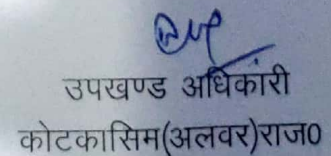 उपखण्ड अधिकारी
कोटकासिम(अलवर)राज0